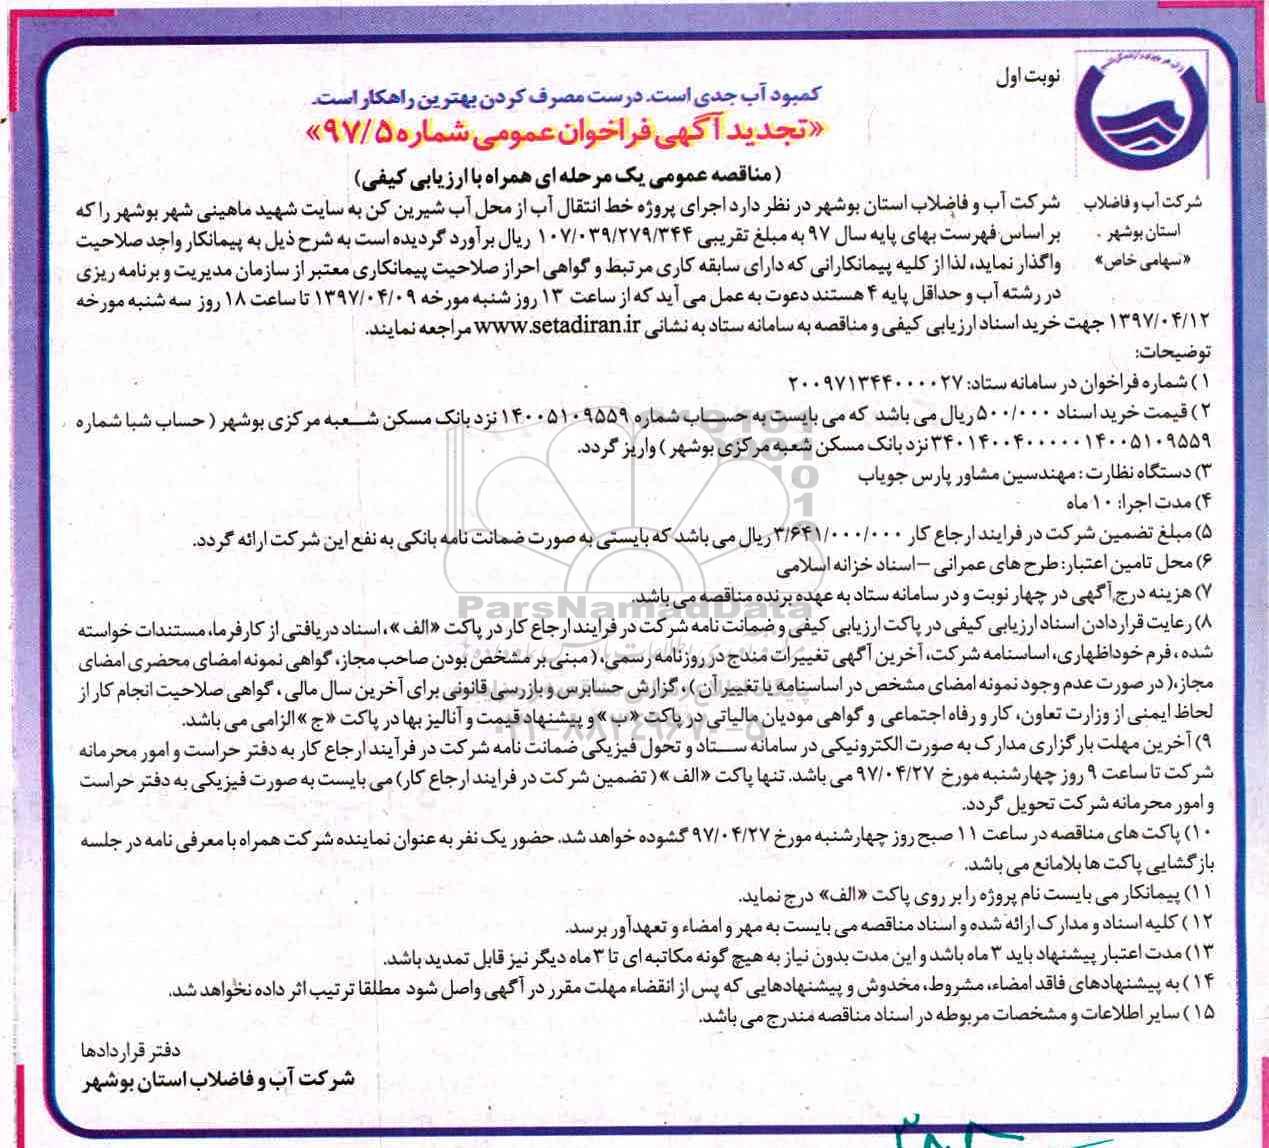 نوبت اول
کمبود آب جدی است. درست مصرف کردن بهترین راهکار است.
«تجدید آگهی فراخوان عمومی شماره ۹۷/۵»
(مناقصه عمومی یک مرحله ای همراه با ارزیابی کیفی)
شرکت آب و فاضلاب
استان بوشهر
«سهامی خاص»
شرکت آب و فاضلاب استان بوشهر در نظر دارد اجرای پروژه خط انتقال آب از محل آب شیرین کن به سایت شهید ماهینی شهر بوشهر را که
بر اساس فهرست بهای پایه سال ۹۷ به مبلغ تقریبی ۱۰۷/۰۳۹/۲۷۹/۳۴۴ ریال برآورد گردیده است به شرح ذیل به پیمانکار واجد صلاحیت
واگذار نماید، لذا از کلیه پیمانکارانی که دارای سابقه کاری مرتبط و گواهی احراز صلاحیت پیمانکاری معتبر از سازمان مدیریت و برنامه ریزی
در رشته آب و حداقل پایه ۴ هستند دعوت به عمل می آید که از ساعت ۱۳ روز شنبه مورخه ۱۳۹۷/۰۴/۰۹ تا ساعت ۱۸ روز سه شنبه مورخه
۱۳۹۷/۰۴/۱۲ جهت خرید اسناد ارزیابی کیفی و مناقصه به سامانه ستاد به نشانی www.setadiran.ir مراجعه نمایند.
توضیحات:
۱) شماره فراخوان در سامانه ستاد: ۲۰۰۹۷۱۳۴۴۰۰۰۰۲۷
۲) قیمت خرید اسناد ۵۰۰/۰۰۰ ریال می باشد که می بایست به حساب شماره ۱۴۰۰۵۱۰۹۵۵۹ نزد بانک مسکن شعبه مرکزی بوشهر (حساب شبا شماره
۳۴۰۱۴۰۰۴۰۰۰۰۰۱۴۰۰۵۱۰۹۵۵۹ نزد بانک مسکن شعبه مرکزی بوشهر) واریز گردد.
۳) دستگاه نظارت: مهندسین مشاور پارس جویاب
۴) مدت اجرا: ۱۰ ماه
۵) مبلغ تضمین شرکت در فرایند ارجاع کار ۳/۶۴۱/۰۰۰/۰۰۰ ریال می باشد که بایستی به صورت ضمانت نامه بانکی به نفع این شرکت ارائه گردد.
۶) محل تامین اعتبار: طرح های عمرانی – اسناد خزانه اسلامی
۷) هزینه درج آگهی در چهار نوبت و در سامانه ستاد به عهده برنده مناقصه می باشد.
ParsNamadData
۸) رعایت قراردادن اسناد ارزیابی کیفی در پاکت ارزیابی کیفی و ضمانت نامه شرکت در فرایند ارجاع کار در پاکت «الف»، اسناد دریافتی از کارفرما، مستندات خواسته
شده، فرم خوداظهاری، اساسنامه شرکت، آخرین آگهی تغییرات مندج در روزنامه رسمی، (مبنی بر مشخص بودن صاحب مجاز، گواهی نمونه امضای محضری امضای
مجاز، (در صورت عدم وجود نمونه امضای مشخص در اساسنامه یا تغییر آن)، گزارش حسابرس و بازرسی قانونی برای آخرین سال مالی، گواهی صلاحیت انجام کار از
لحاظ ایمنی از وزارت تعاون، کار و رفاه اجتماعی و گواهی مودیان مالیاتی در پاکت «ب» و پیشنهاد قیمت و آنالیز بها در پاکت «ج» الزامی می باشد.
۰۲۱-۸۸۳۴۹۶۷۰-۵
۹) آخرین مهلت بارگزاری مدارک به صورت الکترونیکی در سامانه ستاد و تحول فیزیکی ضمانت نامه شرکت در فرآیند ارجاع کار به دفتر حراست و امور محرمانه
شرکت تا ساعت ۹ روز چهارشنبه مورخ ۹۷/۰۴/۲۷ می باشد. تنها پاکت «الف» (تضمین شرکت در فرایند ارجاع کار) می بایست به صورت فیزیکی به دفتر حراست
و امور محرمانه شرکت تحویل گردد.
۱۰) پاکت های مناقصه در ساعت ۱۱ صبح روز چهارشنبه مورخ ۹۷/۰۴/۲۷ گشوده خواهد شد. حضور یک نفر به عنوان نماینده شرکت همراه با معرفی نامه در جلسه
بازگشایی پاکت ها بلامانع می باشد.
۱۱) پیمانکار می بایست نام پروژه را بر روی پاکت «الف» درج نماید.
۱۲) کلیه اسناد و مدارک ارائه شده و اسناد مناقصه می بایست به مهر و امضاء و تعهدآور برسد.
۱۳) مدت اعتبار پیشنهاد باید ۳ ماه باشد و این مدت بدون نیاز به هیچ گونه مکاتبه ای تا ۳ ماه دیگر نیز قابل تمدید باشد.
۱۴) به پیشنهادهای فاقد امضاء، مشروط، مخدوش و پیشنهادهایی که پس از انقضاء مهلت مقرر در آگهی واصل شود مطلقا ترتیب اثر داده نخواهد شد.
۱۵) سایر اطلاعات و مشخصات مربوطه در اسناد مناقصه مندرج می باشد.
دفتر قراردادها
شرکت آب و فاضلاب استان بوشهر